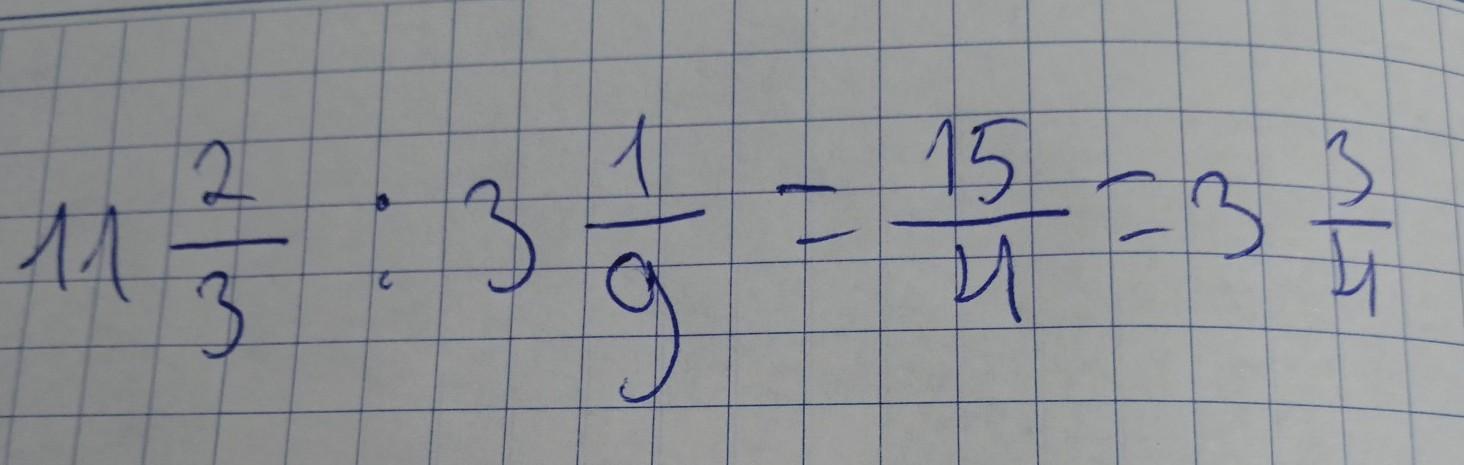 11 2/3 : 3 1/9 = 15/4 = 3 3/4